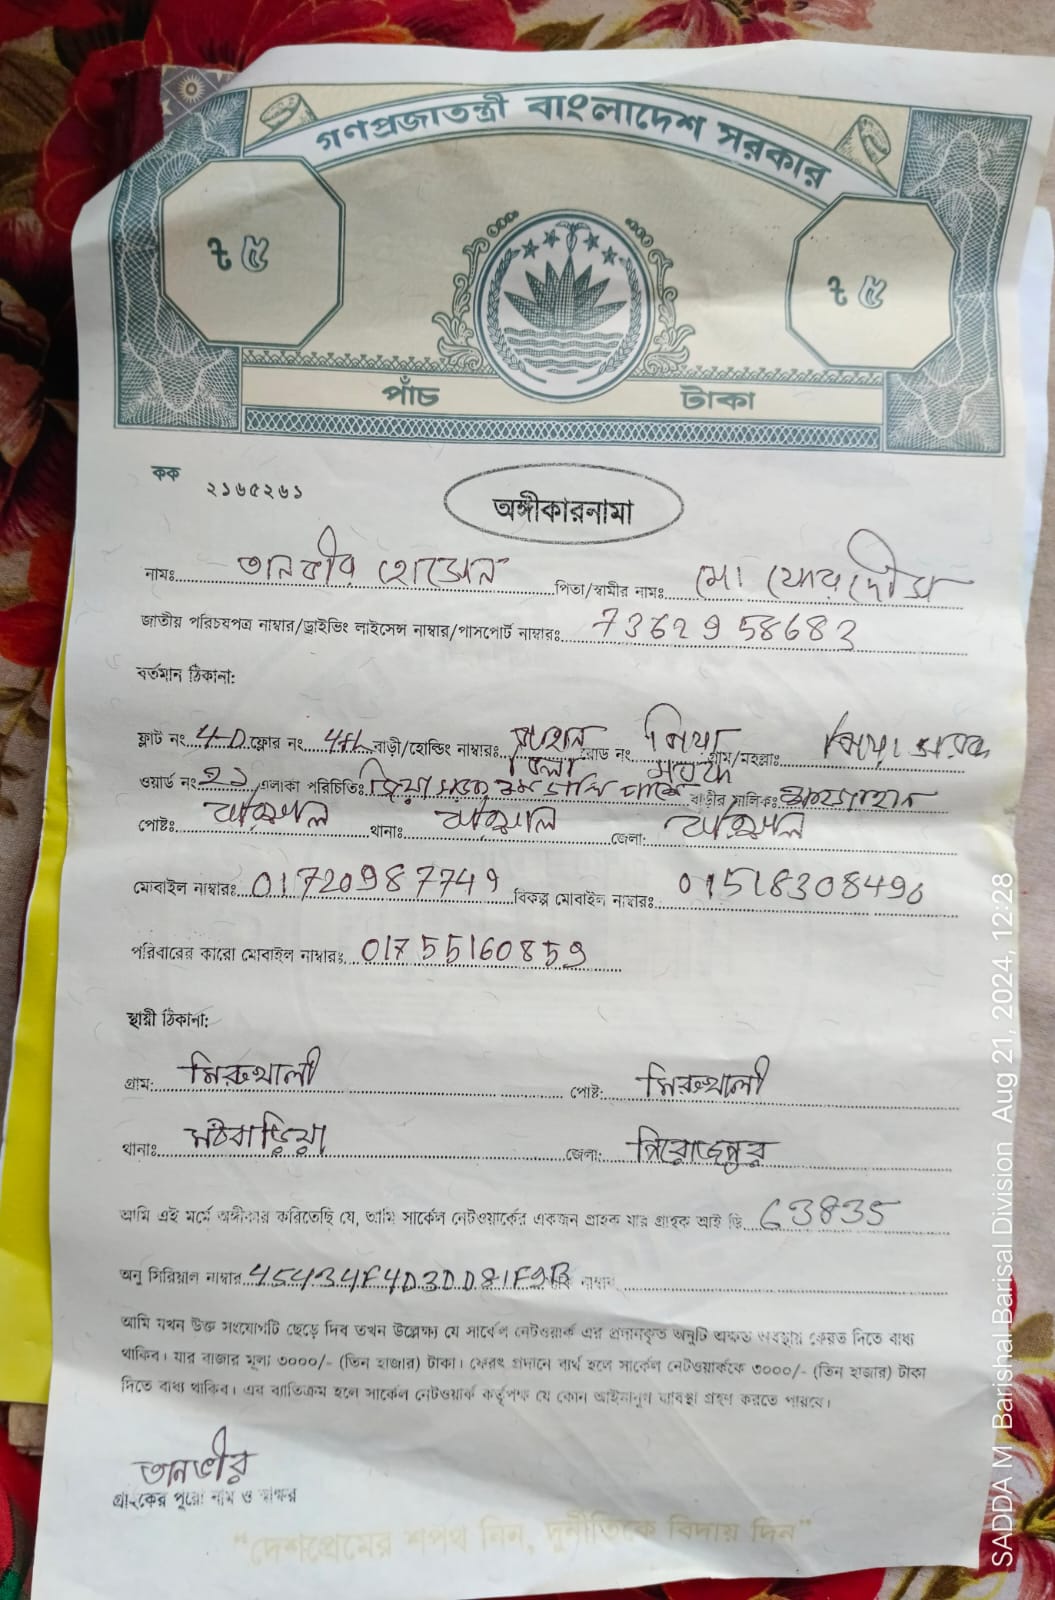 গণপ্রজাতন্ত্রী বাংলাদেশ সরকার
৳ ৫ ৳ ৫
পাঁচ টাকা
কক ২১৬৫২৬১
অঙ্গীকারনামা
নামঃ তানভীর হোসেন পিতা/স্বামীর নামঃ মো ফেরদৌস
জাতীয় পরিচয়পত্র নাম্বার/ড্রাইভিং লাইসেন্স নাম্বার/পাসপোর্ট নাম্বারঃ 7362958683
বর্তমান ঠিকানা:
ফ্লাট নং 4-D ফ্লোর নং 4th বাড়ী/হোল্ডিং নাম্বারঃ ভিলা রোড নং জিয়া সড়ক গ্রাম/মহল্লাঃ জিয়া সড়ক
ওয়ার্ড নং এলাকা পরিচিতিঃ জিয়া সড়ক বাড়ীর মালিকঃ
পোষ্টঃ বরিশাল থানাঃ বরিশাল জেলা: বরিশাল
মোবাইল নাম্বারঃ 01720987749 বিকল্প মোবাইল নাম্বারঃ 01518308496
পরিবারের কারো মোবাইল নাম্বারঃ 01755160859
স্থায়ী ঠিকানা:
গ্রাম: মিরুখালী পোষ্ট: মিরুখালী
থানাঃ মঠবাড়িয়া জেলা: পিরোজপুর
আমি এই মর্মে অঙ্গীকার করিতেছি যে, আমি সার্কেল নেটওয়ার্কের একজন গ্রাহক যার গ্রাহক আই ডি 63835
অনু সিরিয়াল নাম্বার 45434F4D3DD81F9B নাম্বার
আমি যখন উক্ত সংযোগটি ছেড়ে দিব তখন উল্লেক্ষ্য যে সার্কেল নেটওয়ার্ক এর প্রদানকৃত অনুটি অক্ষত অবস্থায় ফেরত দিতে বাধ্য
থাকিব। যার বাজার মূল্য ৩০০০/- (তিন হাজার) টাকা। ফেরৎ প্রদানে ব্যর্থ হলে সার্কেল নেটওয়ার্ককে ৩০০০/- (তিন হাজার) টাকা
দিতে বাধ্য থাকিব। এর ব্যতিক্রম হলে সার্কেল নেটওয়ার্ক কর্তৃপক্ষ যে কোন আইনানুগ ব্যবস্থা গ্রহণ করতে পারবে।
তানভীর
গ্রাহকের পুরো নাম ও স্বাক্ষর
"দেশপ্রেমের শপথ নিন, দুর্নীতিকে বিদায় দিন"
SADDA M Barishal Barisal Division Aug 21, 2024, 12:28